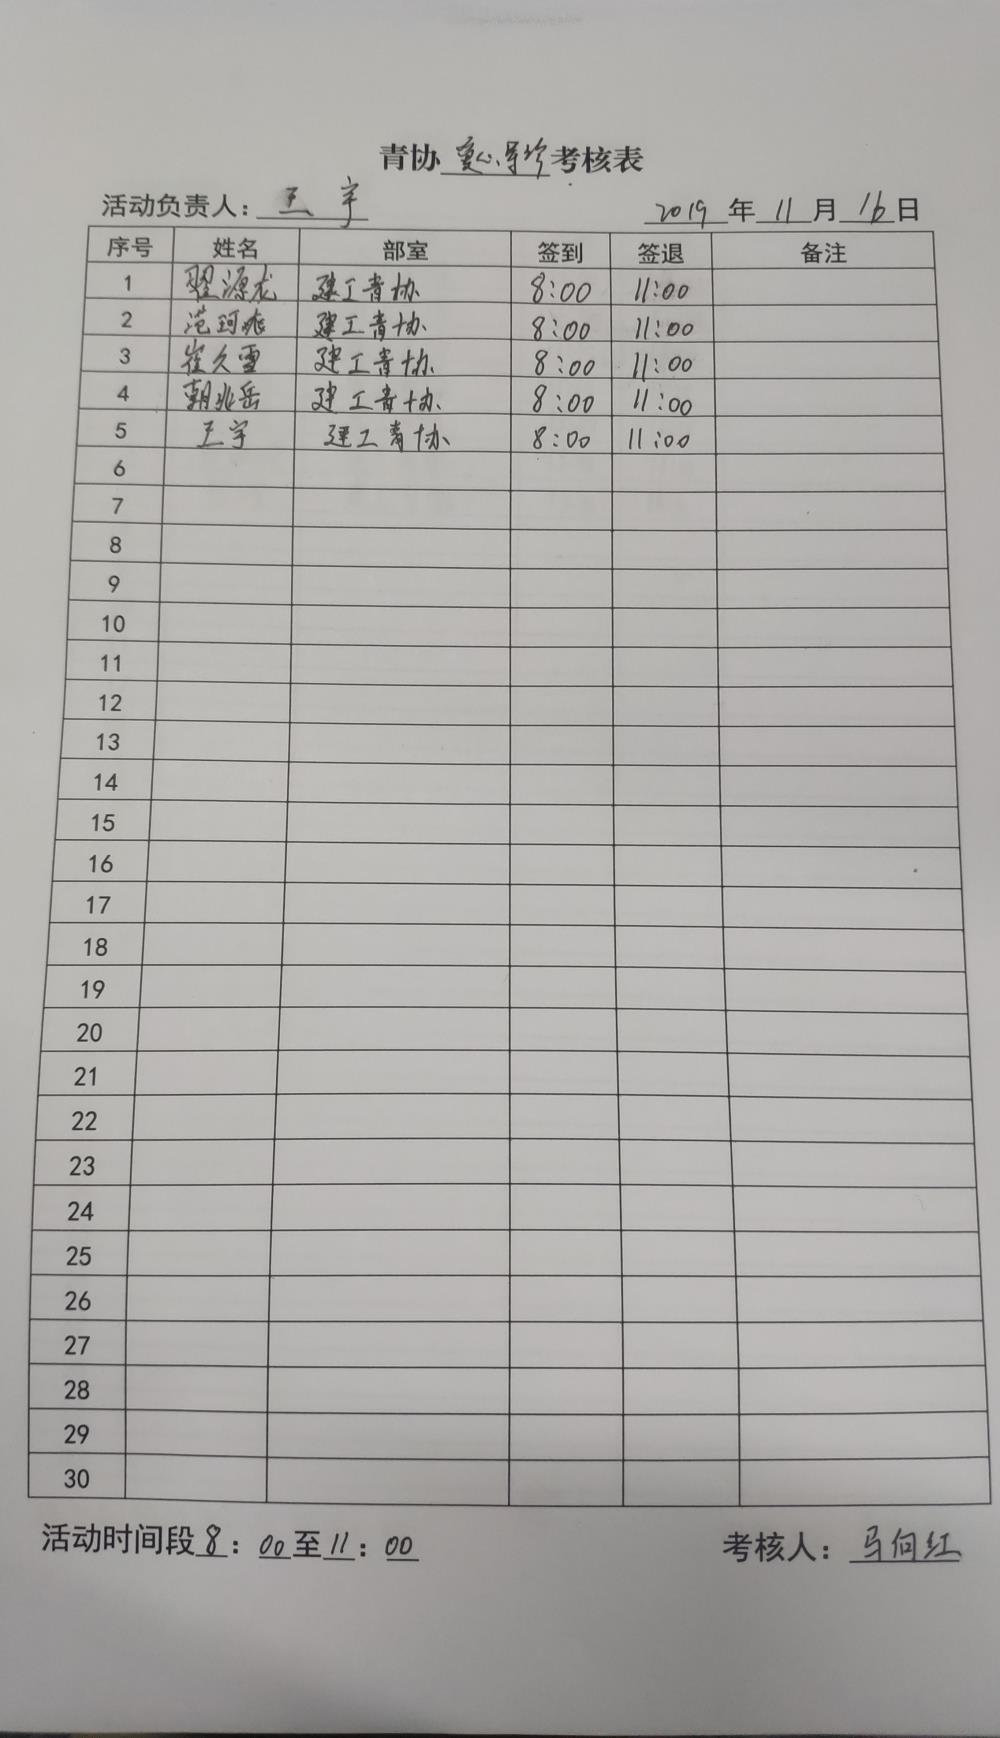 青协爱心导诊考核表
活动负责人：王宇 2019年11月16日
序号 姓名 部室 签到 签退 备注
1 翟源龙 建工青协 8:00 11:00
2 范珂 建工青协 8:00 11:00
3 崔久雪 建工青协 8:00 11:00
4 朝兆岳 建工青协 8:00 11:00
5 王宇 建工青协 8:00 11:00
6
7
8
9
10
11
12
13
14
15
16
17
18
19
20
21
22
23
24
25
26
27
28
29
30
活动时间段8：00至11：00 考核人：马向红